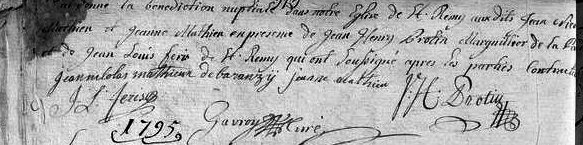 la benediction nuptiale dans notre Eglise de St. Remy aux dits Jean Nico
Mathieu et Jeanne Mathieu en presence de Jean Henry Protin Marguillier de la P
et de Jean Louis feris de St. Remy qui ont soussigné apres les parties Contracta
jean nicolas mathieu de baranzy Jeanne Mathieu
J L feris J: H: Protin
1795 Gavroy Curé